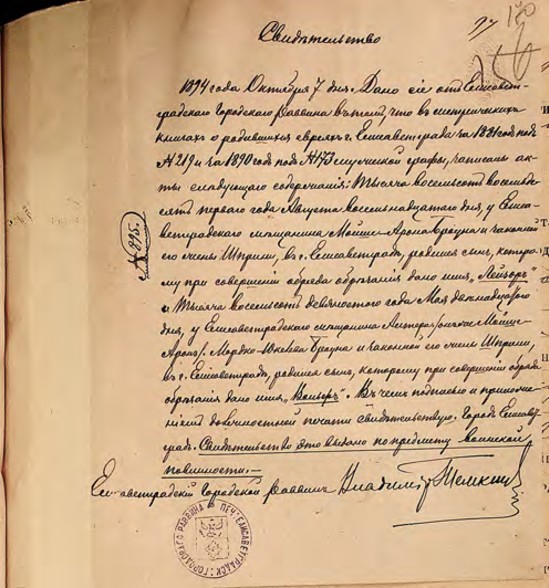 Свидѣтельство
1894 года Октября 7 дня. Дано сіе отъ Елисавет-
градскаго Городскаго Раввина въ томъ, что въ метрическихъ
книгахъ о родившихся евреяхъ г. Елисаветграда за 1881 годъ подъ
№ 219 и за 1890 годъ подъ № 173 мужеской графы, записаны ак-
ты слѣдующаго содержанія: Тысяча восемьсотъ восемьде-
сятъ перваго года Августа восемнадцатаго дня, у Елиса-
ветградскаго мѣщанина Мойше-Арона Брауна и законной
его жены Шпринци, въ г. Елисаветградѣ, родился сынъ, которо-
му при совершеніи обряда обрѣзанія дано имя „Лейзоръ"
и Тысяча восемьсотъ девяностого года Мая двѣнадцатаго
дня, у Елисаветградскаго мѣщанина Мойше-
Арона Мордко- Брауна и законной его жены Шпринци,
въ г. Елисаветградѣ, родился сынъ, которому при совершеніи обряда
обрѣзанія дано имя . Въ чемъ подписью и приложе-
ніемъ должностной печати свидѣтельствую. Городъ Елисавет-
градъ. Свидѣтельство это выдано по предмету воинской
повинности.—
Елисаветградскій Городской Раввинъ Владиміръ Темкинъ
№ 895.
ПЕЧ. ЕЛИСАВЕТГРАДСК. ГОРОДСКАГО РАВВИНА